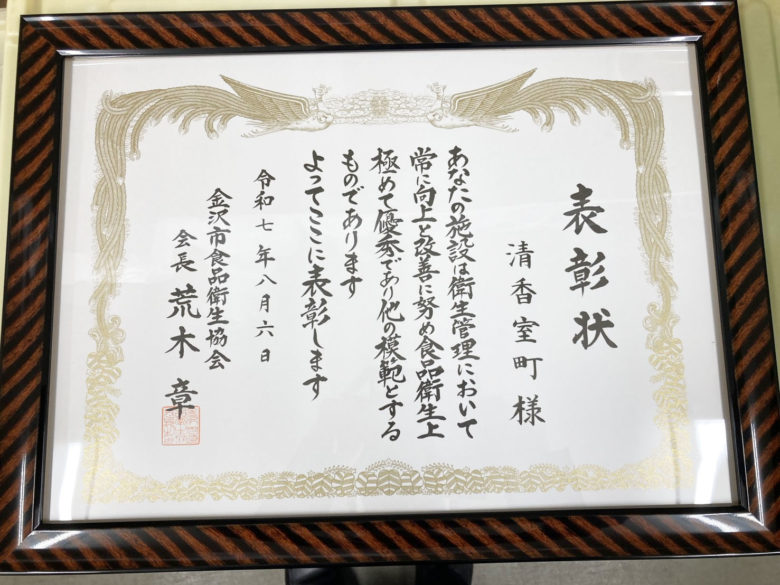 表彰状
清香室町 様
あなたの施設は衛生管理において
常に向上と改善に努め食品衛生上
極めて優秀であり他の模範とする
ものであります
よってここに表彰します
令和七年八月六日
金沢市食品衛生協会
会長 荒木 章